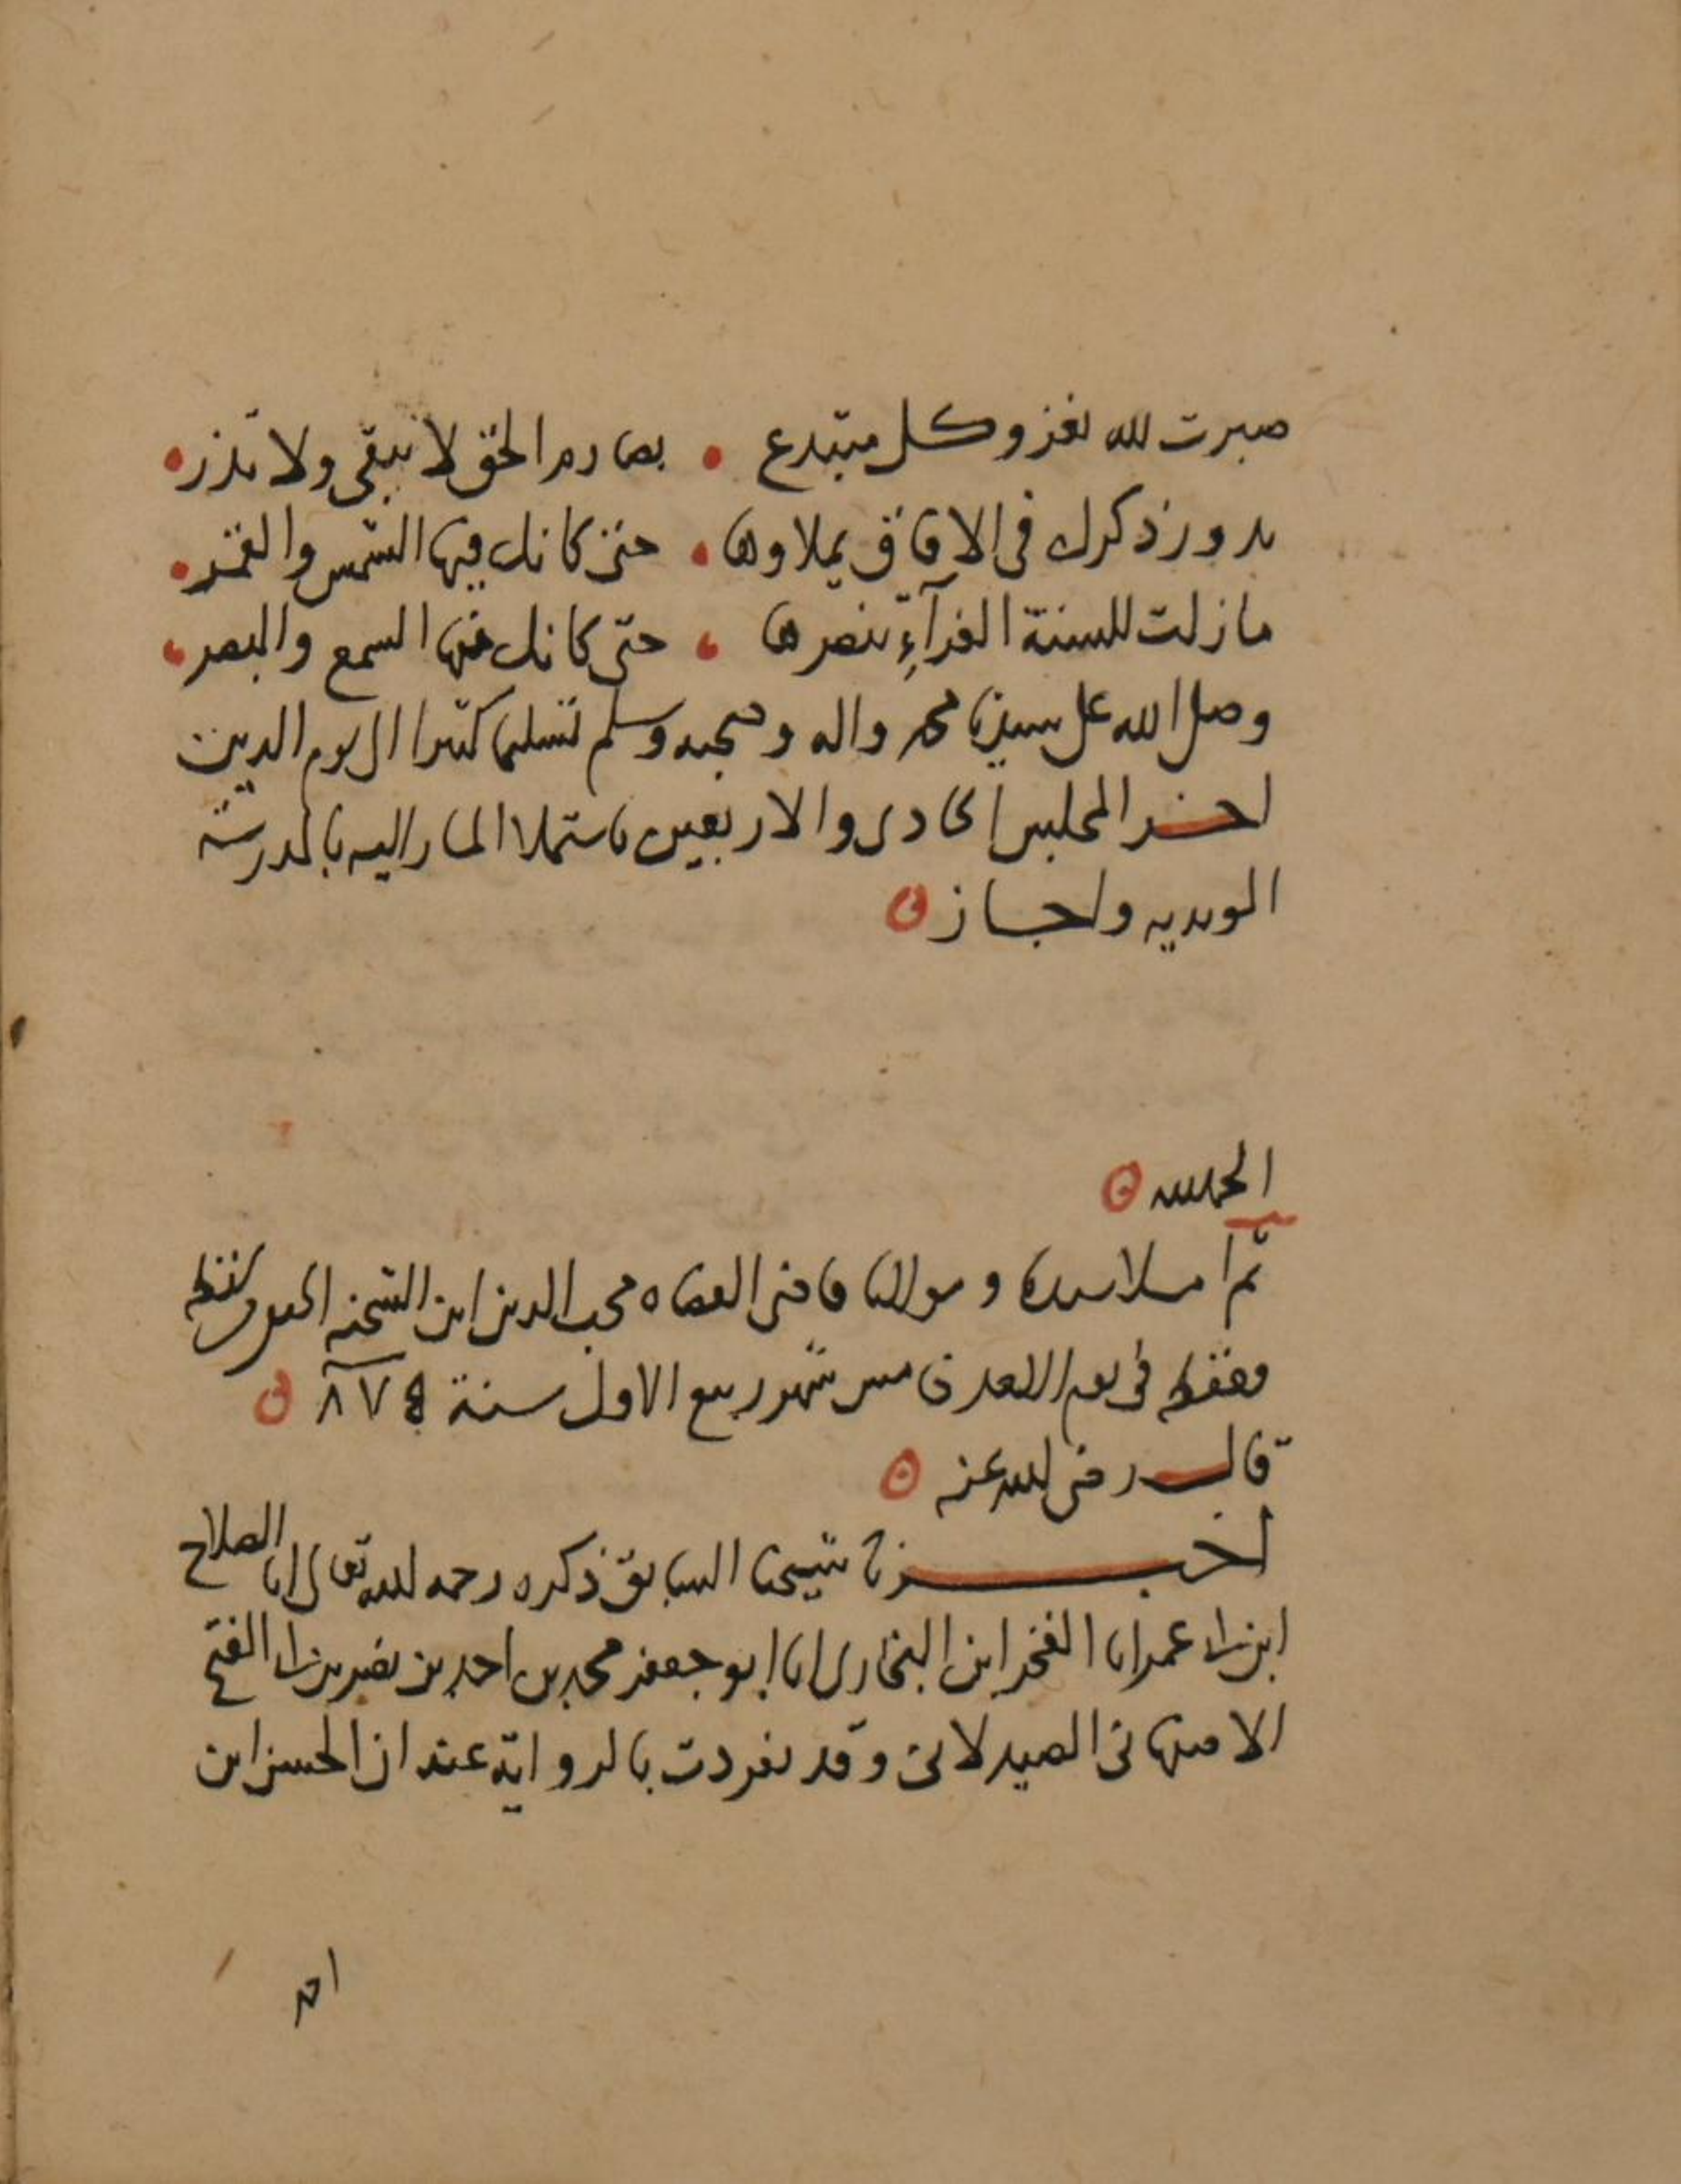 صبرت لله تغزو كل مبتدع • بصارم الحق لا يبقى ولا تذر •
بدور ذكرك فى الافاق يملاوها • حتى كانك فيها الشمس والقمر •
ما زلت للسنة الغرآءِ تنصرها • حتى كانك منها السمع والبصر •
وصلى الله على سيدنا محمد واله وصحبه وسلم تسليما كثيرا الى يوم الدين
اخر المجلس الحادى والاربعين باستملا المشار اليه بالمدرسة
المويديه واجاز
الحمد لله
ثم املا سيدنا ومولانا قاضى القضاه محب الدين ابن الشحنه الحنفى من لفظه
وحفظه فى يوم من شهر ربيع الاول سنة ٨٧٤
قال رضى الله عنه
اخبرنا شيخنا السابق ذكره رحمه الله تعالى انا الصلاح
ابن ابى عمر انا الفخر ابن البخارى انا ابو جعفر محمد بن احمد بن نصر بن ابى الفتح
الاصبهانى الصيدلانى وقد تفردت بالرواية عنه ان الحسن ابن
احمد